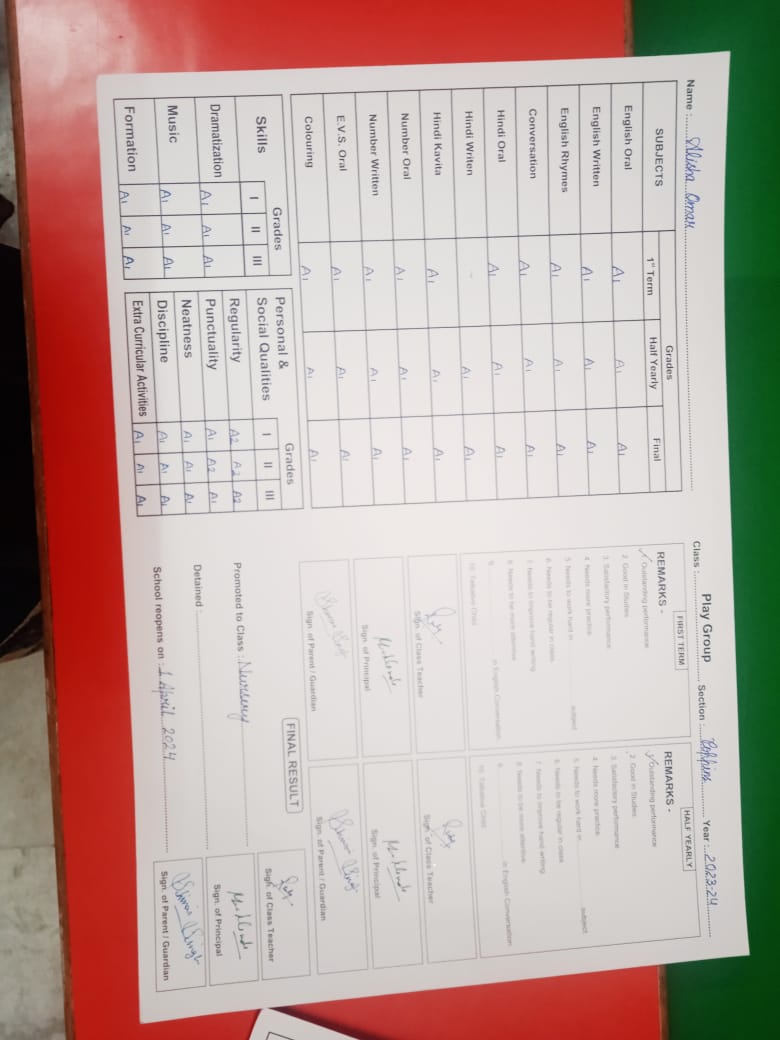 Name : Alisha Omar Class : Play Group Section : Poppins Year : 2023-24
SUBJECTS Grades
1st Term Half Yearly Final
English Oral A1 A1 A1
English Written A1 A1 A1
English Rhymes A1 A1 A1
Conversation A1 A1 A1
Hindi Oral A1 A1 A1
Hindi Writen - A1 A1
Hindi Kavita A1 A1 A1
Number Oral A1 A1 A1
Number Written A1 A1 A1
E.V.S. Oral A1 A1 A1
Colouring A1 A1 A1
Skills Grades
I II III
Dramatization A1 A1 A1
Music A1 A1 A1
Formation A1 A1 A1
Personal & Social Qualities Grades
I II III
Regularity A2 A2 A2
Punctuality A1 A2 A1
Neatness A1 A1 A1
Discipline A1 A1 A1
Extra Curricular Activities A1 A1 A1
FIRST TERM
REMARKS -
1. Outstanding performance
2. Good in Studies
3. Satisfactory performance
4. Needs more practice
5. Needs to work hard in subject
6. Needs to be regular in class
7. Needs to improve hand writing
8. Needs to be more attentive
9. in English Conversation
10. Talkative Child
Sign. of Class Teacher
Sign. of Principal
Sign. of Parent / Guardian
HALF YEARLY
REMARKS -
1. Outstanding performance
2. Good in Studies
3. Satisfactory performance
4. Needs more practice
5. Needs to work hard in subject
6. Needs to be regular in class
7. Needs to improve hand writing
8. Needs to be more attentive
9. in English Conversation
10. Talkative Child
Sign. of Class Teacher
Sign. of Principal
Sign. of Parent / Guardian
FINAL RESULT
Promoted to Class : Nursery
Detained :
School reopens on : 1 April 2024
Sign. of Class Teacher
Sign. of Principal
Sign. of Parent / Guardian